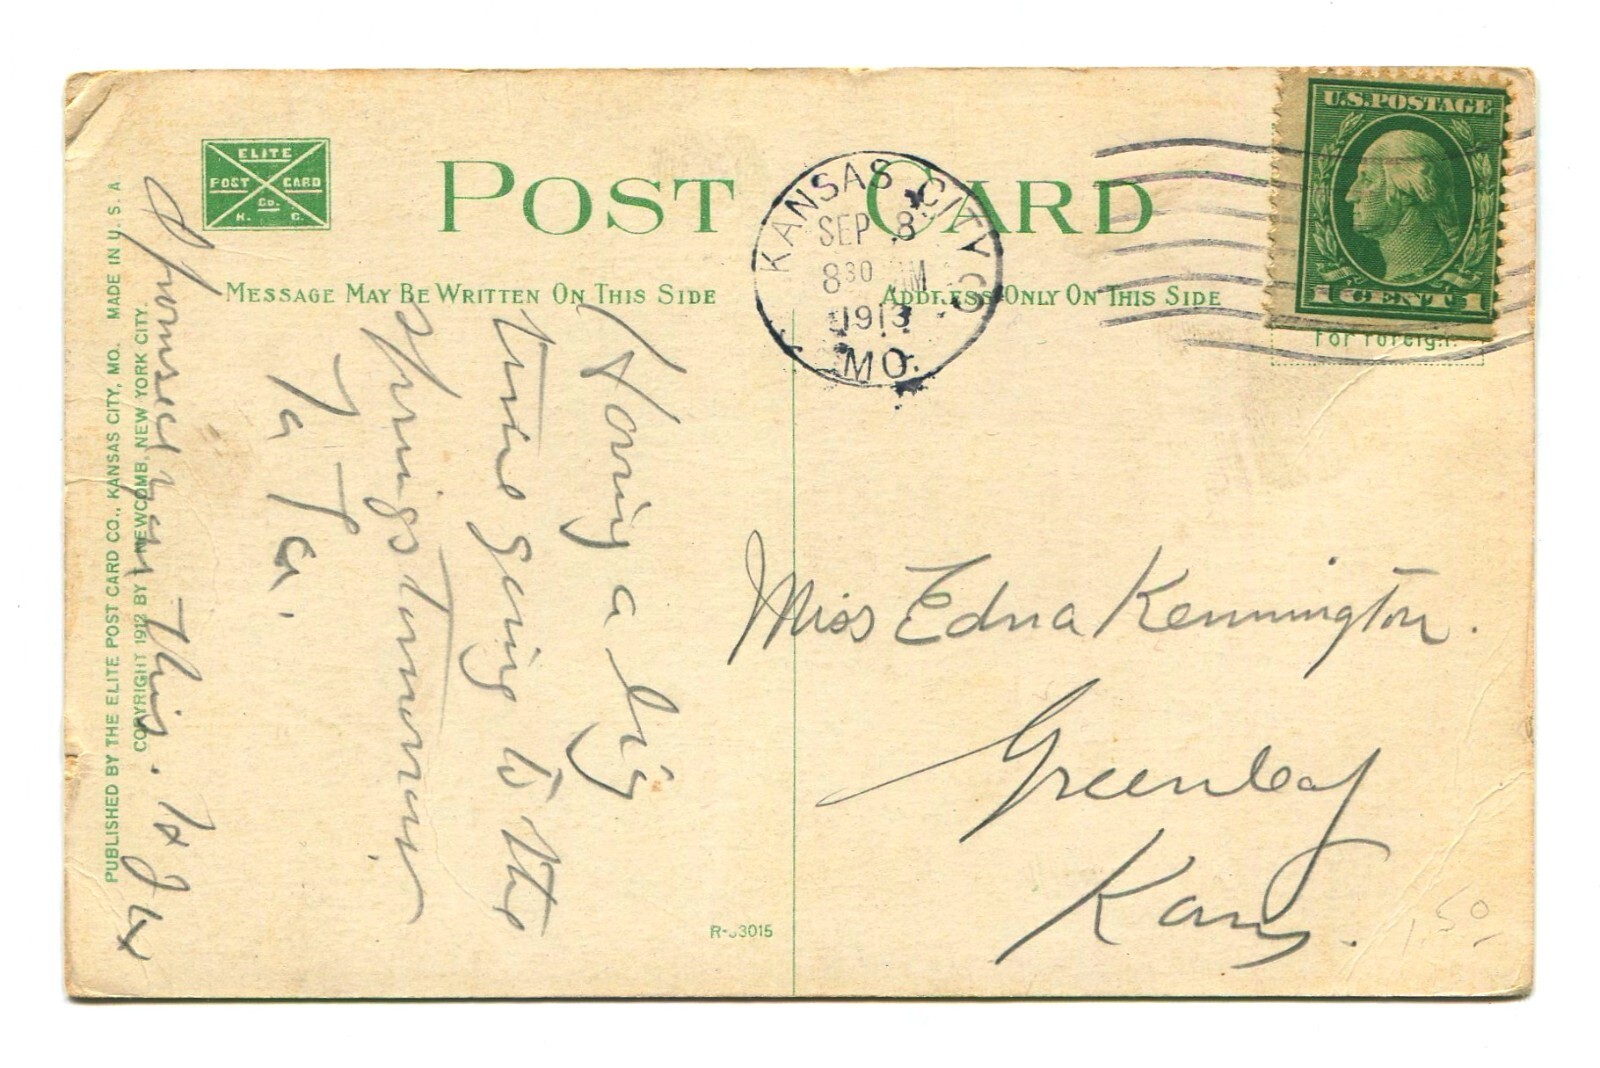 ELITE
POST CARD
Co.
K. C.
POST CARD
MESSAGE MAY BE WRITTEN ON THIS SIDE
ADDRESS ONLY ON THIS SIDE
KANSAS CITY
SEP 8
8 30 M
1913
MO.
U.S. POSTAGE
1 CENT 1
For Foreign
Having a big
time going to the
springs tomorrow
Ta Ta.
I promised you this.
Miss Edna Kennington.
Greenleaf
Kans.
1.50
PUBLISHED BY THE ELITE POST CARD CO., KANSAS CITY, MO. MADE IN U. S. A
COPYRIGHT 1912 BY NEWCOMB, NEW YORK CITY.
3015